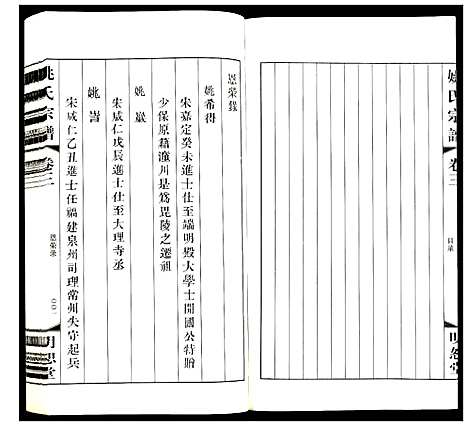 姚氏宗譜
卷三
目录
明恕堂
恩荣錄
姚希得
宋嘉定癸未進士仕至端明殿大學士開國公特贈
少保原籍潼川是爲毘陵之遷祖
姚巖
宋咸仁戊辰進士仕至大理寺丞
姚訔
宋咸仁乙丑進士任福建泉州司理常州失守起兵
姚氏宗譜
卷三
恩荣录
〇〇一
明恕堂